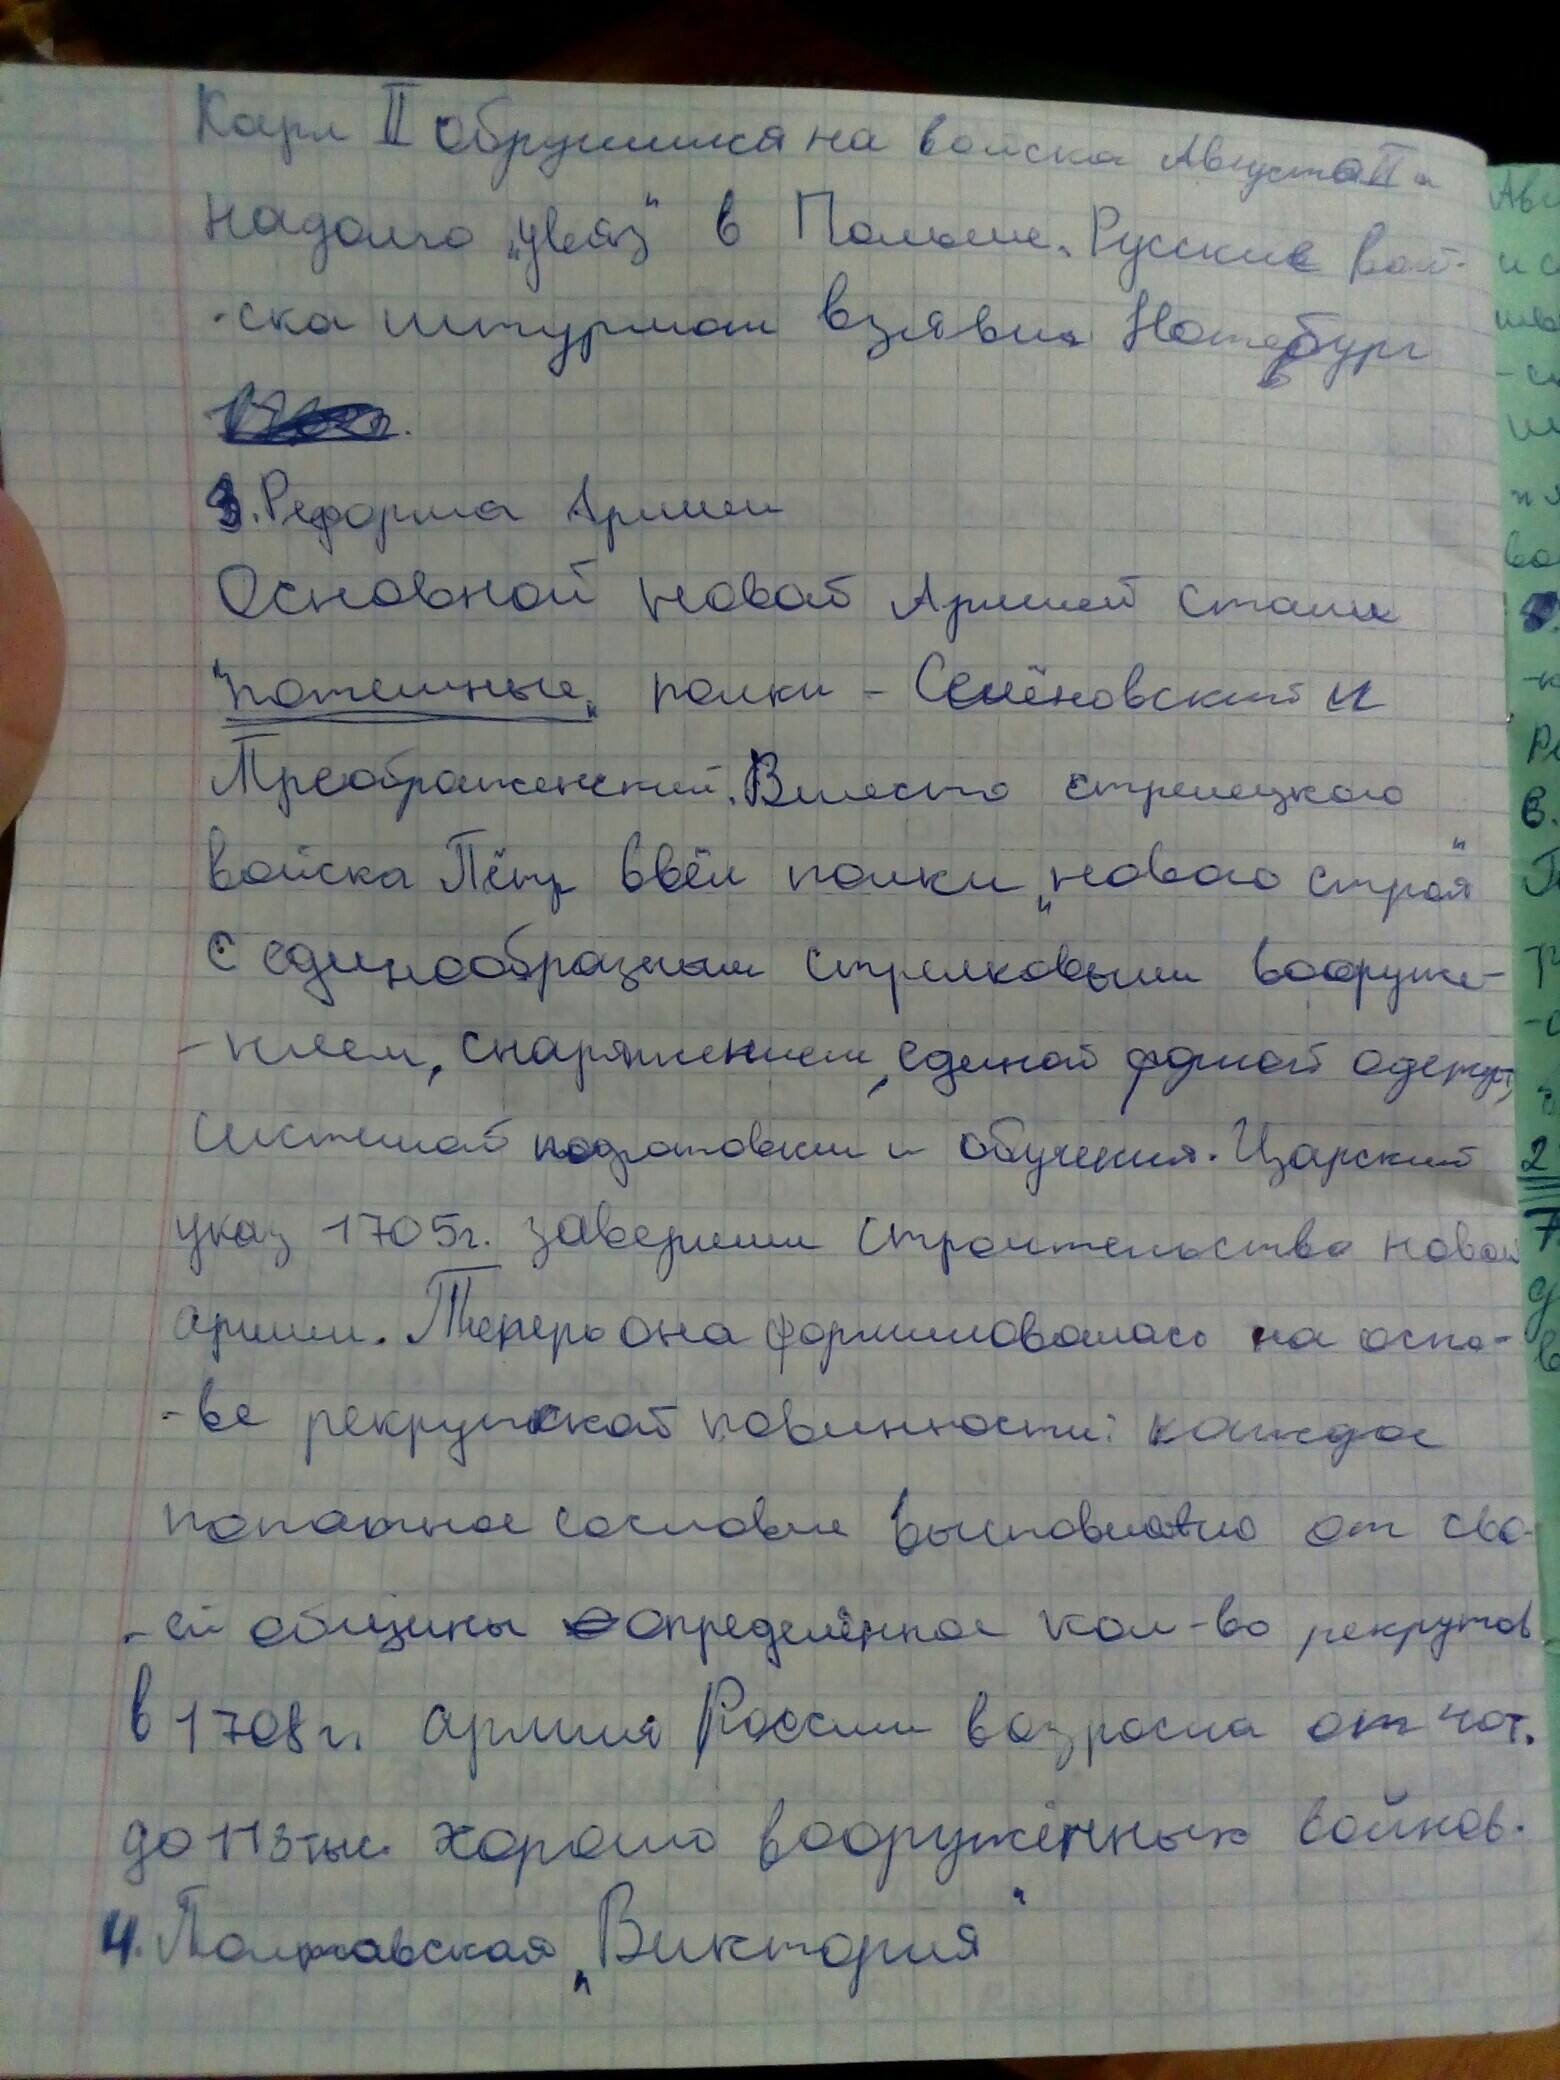 Карл II обрушился на войска Августа II и
надолго „увяз" в Польше. Русские вой-
-ска штурмом взявши Нотебург
3. Реформа Армии
Основной новой Армией стали
"потешные„ полки - Семёновский и
Преображенский. Вместо стрелецкого
войска Пётр ввёл полки „нового строя"
с единообразным стрелковым вооруже-
-нием, снаряжением, единой формой одежды,
системой подготовки и обучения. Царский
указ 1705г. завершил строительство новой
армии. Теперь она формировалась на осно-
-ве рекрутской повинности: каждое
податное сословие выставляло от сво-
-ей общины определённое кол-во рекрутов
в 1708г. армия России возросла от 40т.
до 113тыс. хорошо вооружённых войнов.
4. Полтавская „Виктория"